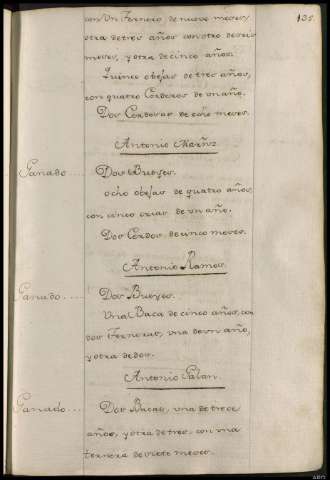 135.
con un Ternero de nueve meses,
otra de tres años con otro de seis
meses, y otra de cinco años.
Quince obejas de tres años,
con quatro Corderos de un año.
Dos Cerdos de ocho meses.
Antonio Marñz
Ganado.... Dos Bueyes.
Ocho obejas de quatro años,
con cinco crias de un año.
Dos Cerdos de cinco meses.
Antonio Ramos
Ganado.... Dos Bueyes.
Una Baca de cinco años, con
dos Terneras, una de un año,
y otra de dos.
Antonio Galan
Ganado.... Dos Bacas, una de trece
años, y otra de tres con una
ternera de siete meses.